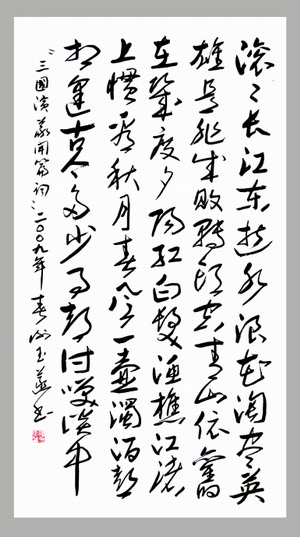 滚〻长江东逝水浪花淘尽英
雄是非成败轉頭空青山依舊
在幾度夕陽红白髮漁樵江渚
上惯看秋月春风一壶濁酒喜
相逢古今多少事都付笑談中
“三國演義開篇词”二〇〇九年春玉书